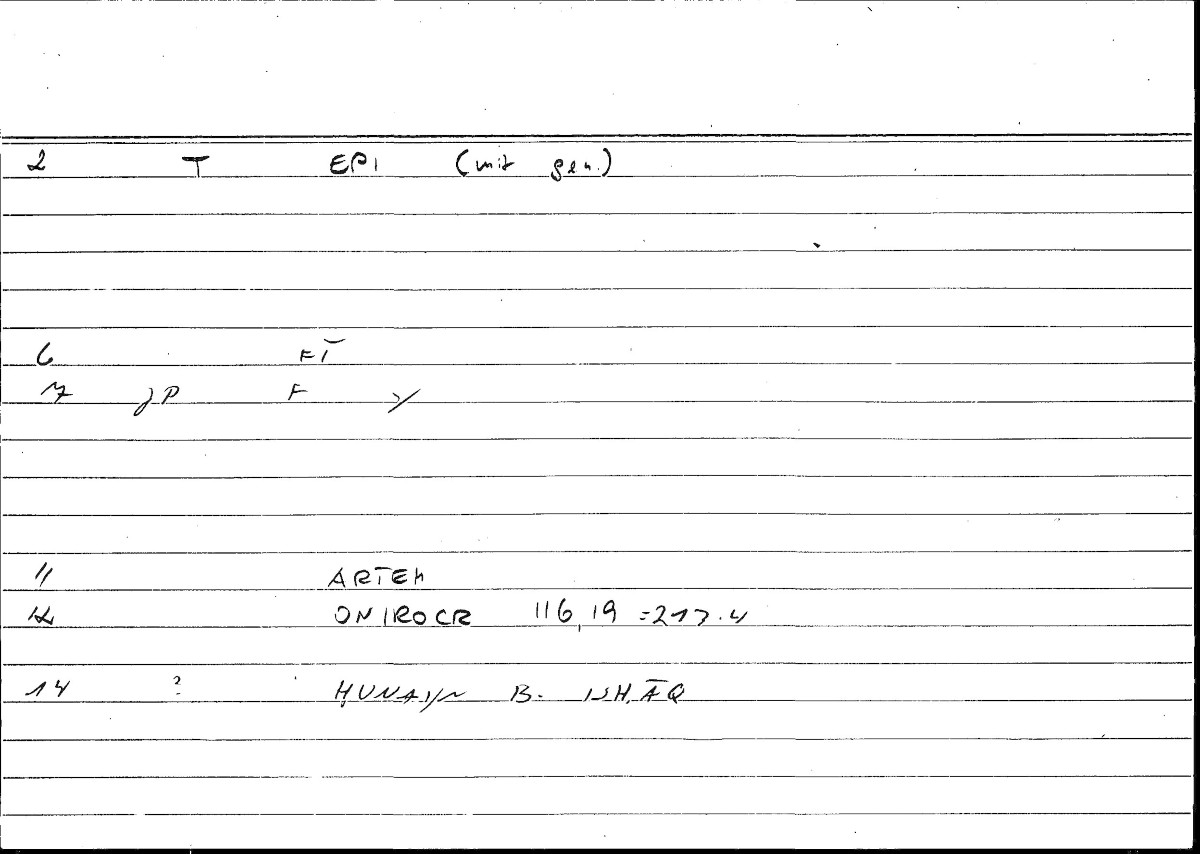 2 T EPI (mit gen.)
6 FĪ
7 JP F Y
11 ARTEM
12 ONIROCR 116,19 =217.4
14 ? ḤUNAYN B. ISḤĀQ